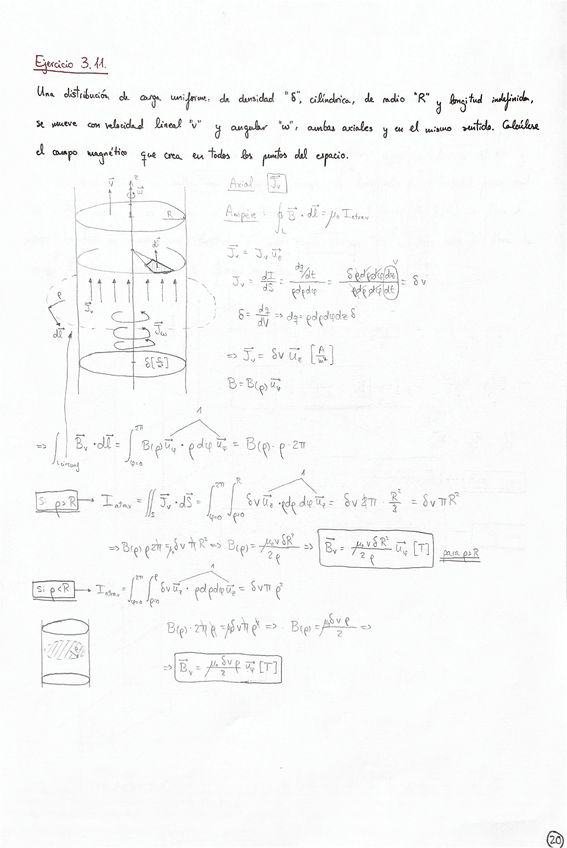 Ejercicio 3.11.
Una distribución de carga uniforme, de densidad "δ", cilíndrica, de radio "R" y longitud indefinida,
se mueve con velocidad lineal "v" y angular "ω", ambas axiales y en el mismo sentido. Calcúlese
el campo magnético que crea en todos los puntos del espacio.
Axial J⃗v
Ampère: ∮L B⃗ · dl⃗ = μ₀ Iatrav
J⃗v = Jv u⃗z
Jv = dI/dS = (dq/dt)/(ρdρdφ) = (δρdρdφdz)/(ρdρdφdt) = δv
δ = dq/dV ⇒ dq = ρdρdφdz δ
⇒ J⃗v = δv u⃗z [A/m²]
B = B(ρ) u⃗φ
v⃗ z ω⃗
R
dS⃗
ρ
J⃗v
dl⃗ J⃗ω
1
⇒ ∫ B⃗v · dl⃗ = ∫φ=0^2π B(ρ) u⃗φ · ρ dφ u⃗φ = B(ρ) · ρ · 2π
1
Si ρ>R → Iatrav = ∬S J⃗v · dS⃗ = ∫φ=0^2π ∫ρ=0^R δv u⃗z · ρdρ dφ u⃗z = δv 2π · R²/2 = δvπR²
⇒ B(ρ) ρ 2π = μ₀ δv π R² ⇒ B(ρ) = μ₀vδR²/2ρ ⇒ B⃗v = μ₀vδR²/2ρ u⃗φ [T] para ρ>R
1
Si ρ<R → Iatrav = ∫φ=0^2π ∫ρ=0^ρ δv u⃗z · ρdρdφ u⃗z = δvπρ²
B(ρ) · 2πρ = μ₀δvπρ² ⇒ B(ρ) = μ₀δvρ/2 ⇒
⇒ B⃗v = μ₀δvρ/2 u⃗φ [T]
20